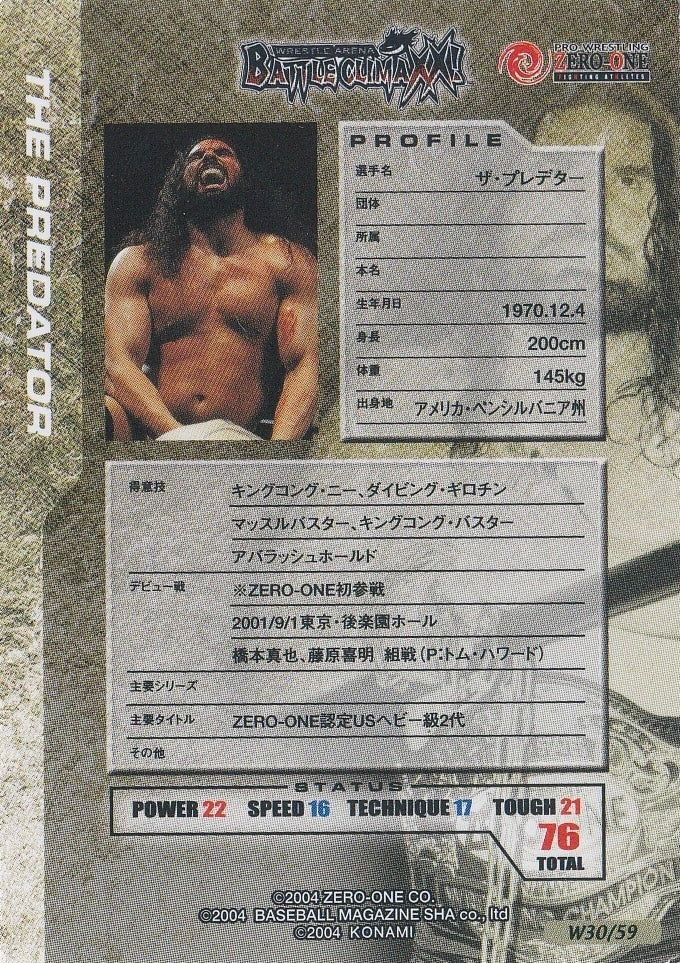 WRESTLE ARENA
BATTLE CLIMAXX!
PRO-WRESTLING
ZERO-ONE
FIGHTING ATHLETES
THE PREDATOR
PROFILE
選手名 ザ・プレデター
団体
所属
本名
生年月日 1970.12.4
身長 200cm
体重 145kg
出身地 アメリカ・ペンシルバニア州
得意技 キングコング・ニー、ダイビング・ギロチン
マッスルバスター、キングコング・バスター
アバラッシュホールド
デビュー戦 ※ZERO-ONE初参戦
2001/9/1東京・後楽園ホール
橋本真也、藤原喜明 組戦(P:トム・ハワード)
主要シリーズ
主要タイトル ZERO-ONE認定USヘビー級2代
その他
STATUS
POWER 22 SPEED 16 TECHNIQUE 17 TOUGH 21
76
TOTAL
CHAMPION
©2004 ZERO-ONE CO.
©2004 BASEBALL MAGAZINE SHA co., ltd
©2004 KONAMI
W30/59